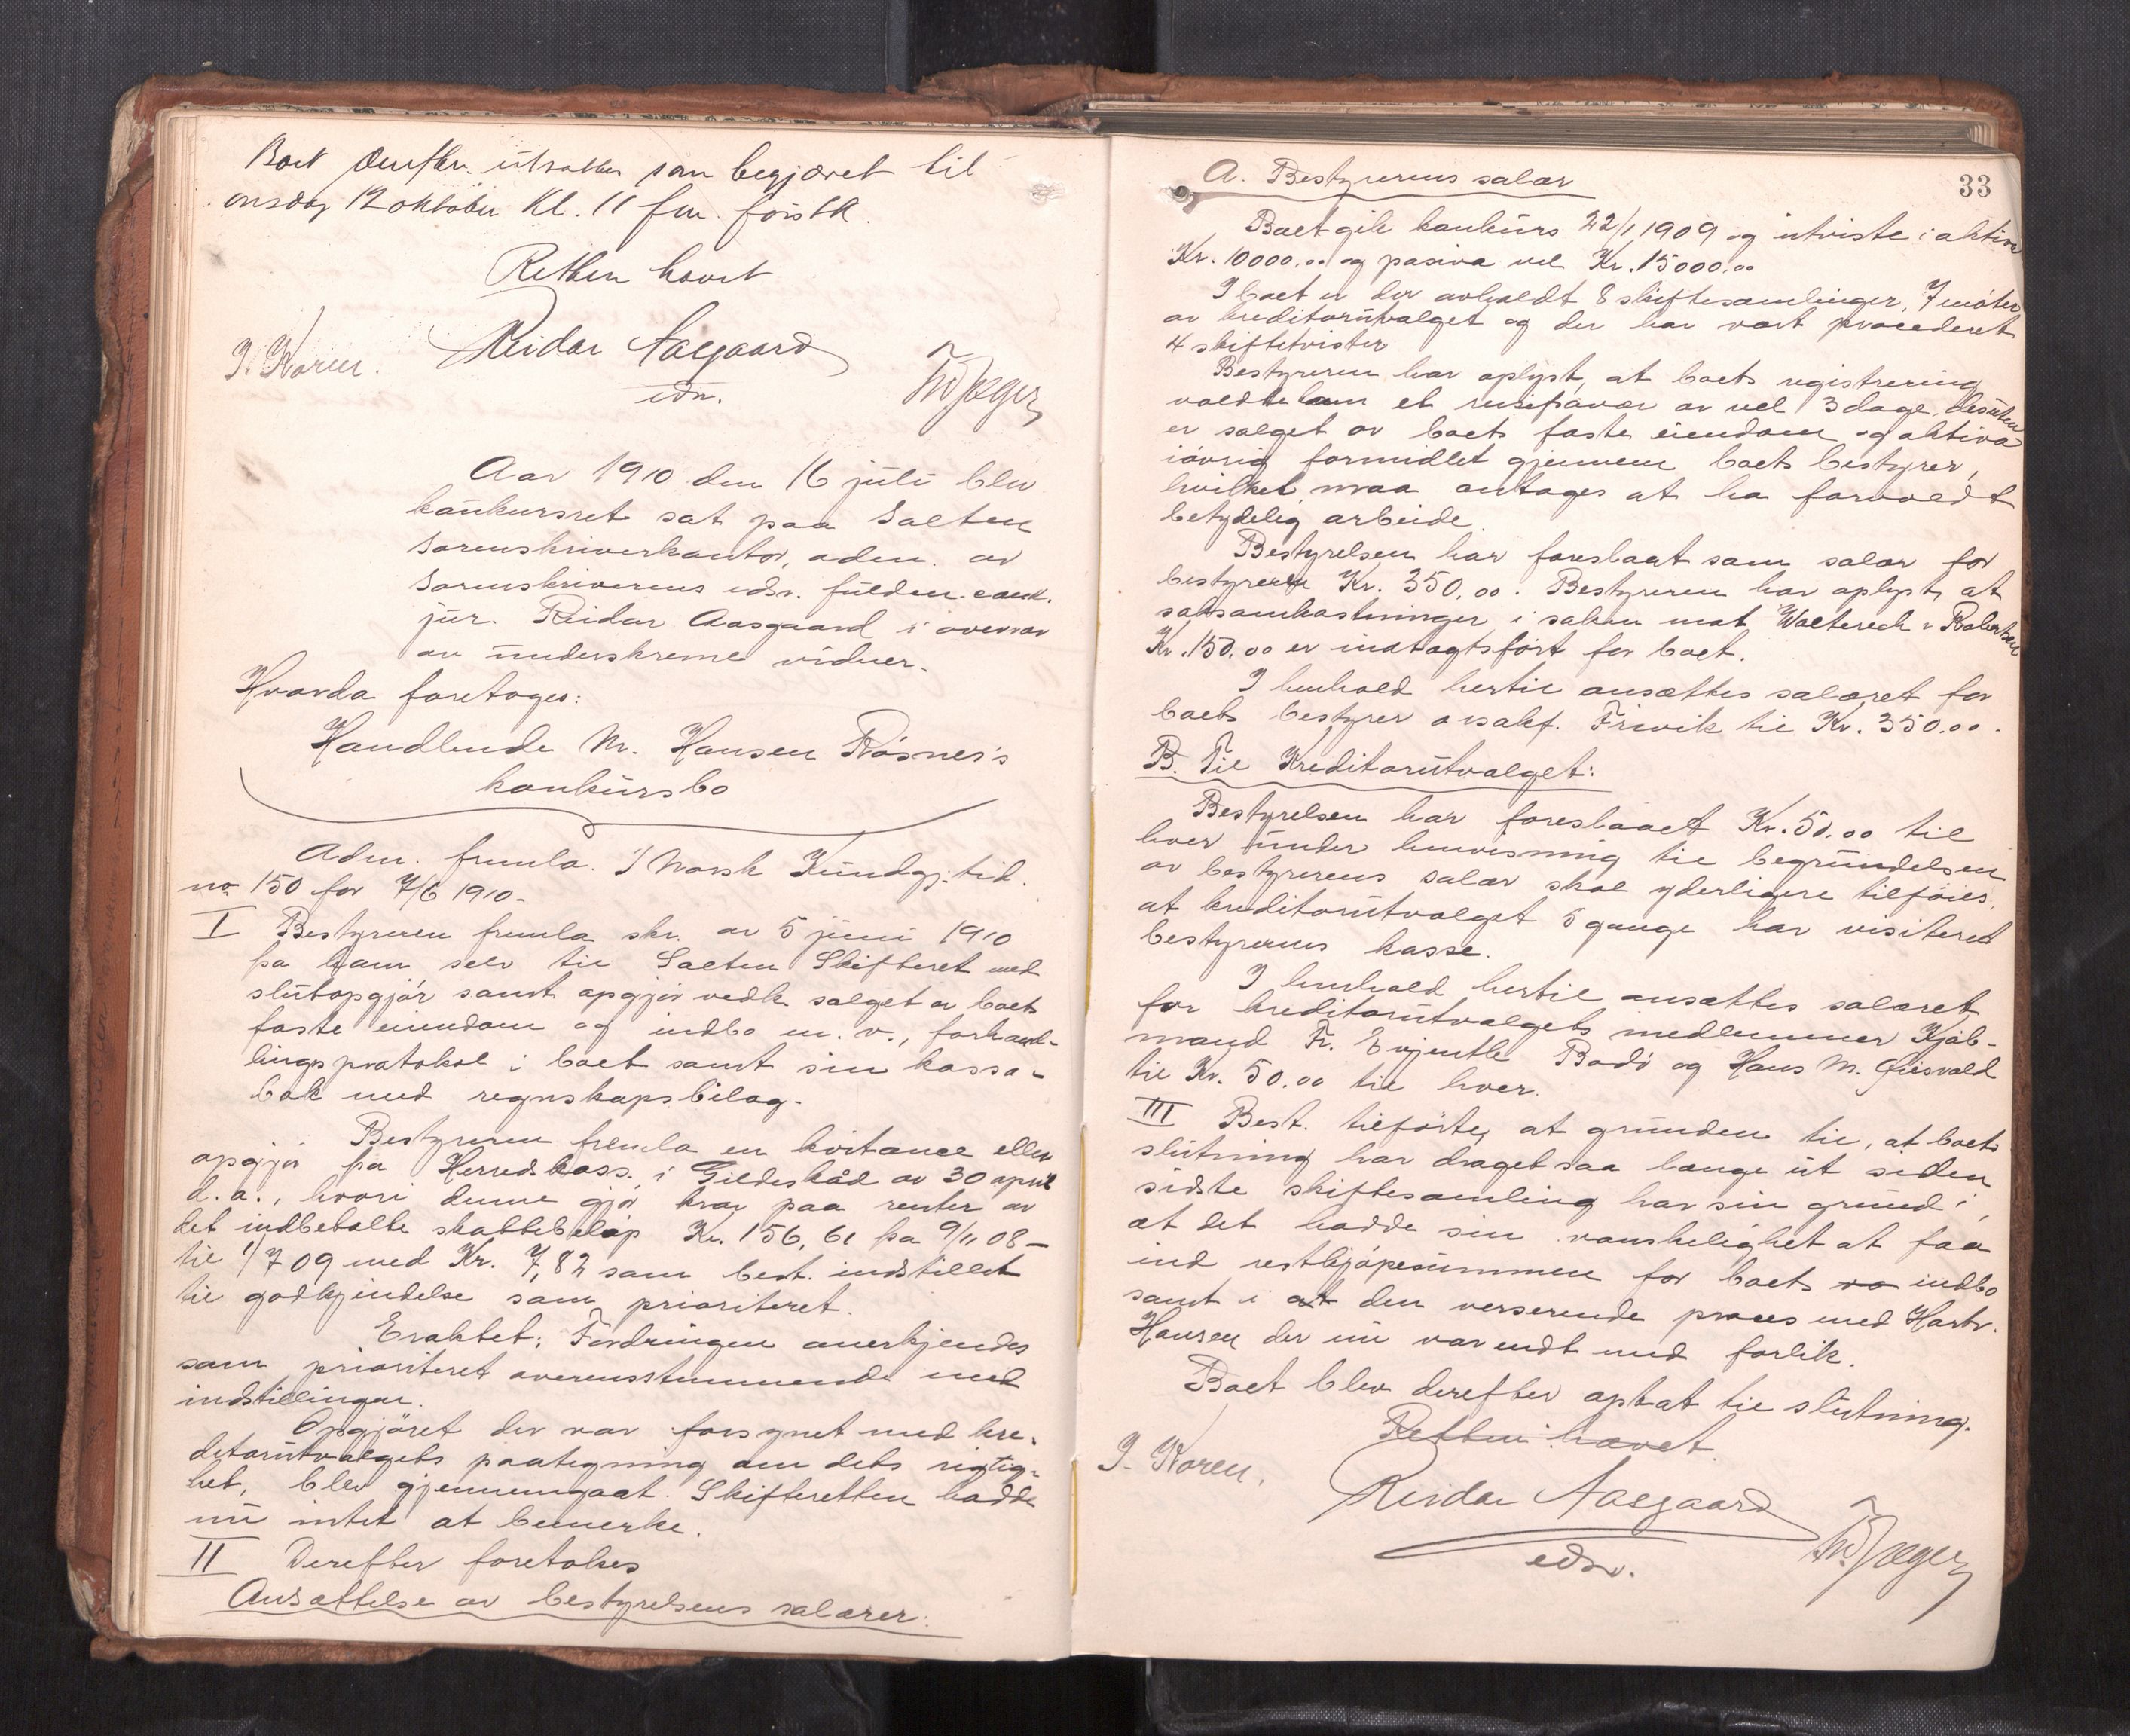 Boet derefter utsattes som begjæret til
onsdag 12 oktober Kl. 11 fm. förstk.
Retten hævet
J. Koren. Reidar Aasgaard
edsv.
Aar 1910 den 16 juli blev
konkursret sat paa Salten
Sorenskriverkontor, adm. av
sorenskriverens edsv. fuldm. cand.
jur. Reidar Aasgaard i overvær
av underskrevne vidner.
Hvorda foretoges:
Handlende M. Hansen Rösnes's
konkursbo
Adm. fremla. I Norsk Kundgj.tid.
no 150 for 7/6 1910-
I Bestyreren fremla skr. av 5 juni 1910
fra ham selv til Salten Skifteret med
slutopgjör samt opgjör vedk. salget av boets
faste eiendom og indbo m. v., forhand-
lingsprotokol i boet samt sin kassa-
bok med regnskapsbilag.
Bestyreren fremla en kvitance eller
opgjör fra Herredskass. i Gildeskål av 30 april
d. a., hvori denne gjör krav paa renter av
det indbetalte skattebelöp Kr. 156,61 fra 9/11 08-
til 1/7 09 med Kr. 7,82 som best. indstillet
til godkjendelse som prioriteret.
Eraktet: Fordringen anerkjendes
som prioriteret overensstemmende med
indstillingen.
Opgjöret der var forsynet med kre-
ditorutvalgets paategning om dets rigtig-
het, blev gjennemgaat. Skifteretten hadde
nu intet at bemerke.
II Derefter foretokes
Ansættelse av bestyrelsens salærer:
33
A. Bestyrerens salær
Boet gik konkurs 22/1 1909 og utviste i aktiva
Kr. 10000.00 og pasiva vel Kr. 15000.00
I boet er der avholdt 8 skiftesamlinger, 7 möter
av kreditorutvalget og der har vært procederet
4 skiftetvister
Bestyreren har oplyst, at boets registrering
voldte ham et reisefravær av vel 3 dage, desuten
er salget av boets faste eiendom og aktiva
iövrig formidlet gjennem boets bestyrer,
hvilket maa antages at ha forvoldt
betydelig arbeide.
Bestyrelsen har foreslaat som salær for
bestyreren Kr. 350.00. Bestyreren har oplyst, at
saksomkostninger i saken mot
Kr. 150.00 er indtægtsfört for boet.
I henhold hertil ansættes salæret for
boets bestyrer o.r.sakf. Friwik til Kr. 350.00.
B. Til Kreditorutvalget:
Bestyrelsen har foreslaaet Kr. 50.00 til
hver under henvisning til begrundelsen
av bestyrerens salær skal yderligere tilföies,
at kreditorutvalget 5 gange har visiteret
bestyrerens kasse.
I henhold hertil ansættes salæret
for kreditorutvalgets medlemmer Kjöb-
mand Fr. Evjenth Bodö og Hans M.
til Kr. 50.00 til hver.
III Best. tilförte, at grunden til, at boets
slutning har draget saa længe ut siden
sidste skiftesamling har sin grund i,
at det hadde sin vanskelighet at faa
ind restkjöpesummen for boets indbo
samt i den verserende proces med Hartv.
Hansen der nu var endt med forlik.
Boet blev derefter optat til slutning.
Retten hævet
J. Koren. Reidar Aasgaard
edsv.